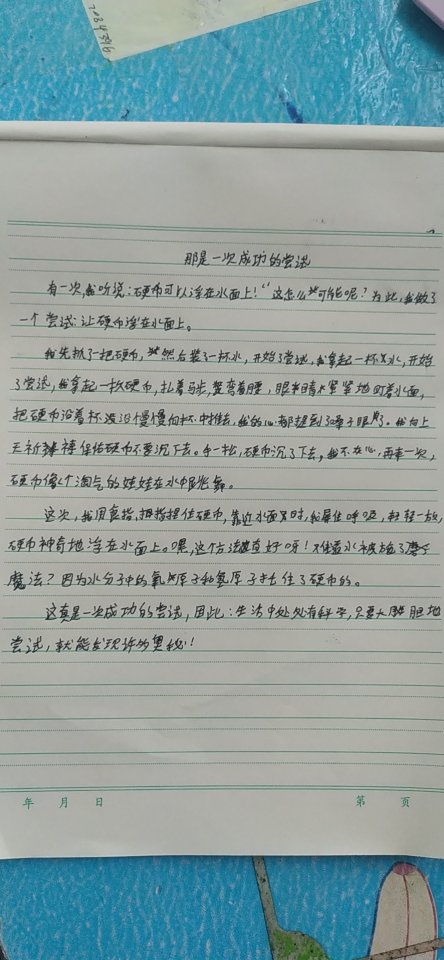 那是一次成功的尝试
有一次,我听说:硬币可以浮在水面上!“这怎么可能呢?为此,我做了
一个尝试:让硬币浮在水面上。
我先抓了一把硬币,然后装了一杯水,开始了尝试,我拿起一杯水,开始
了尝试,我拿起一枚硬币,扎着马步,弯着腰,眼睛紧紧地盯着水面,
把硬币沿着杯沿慢慢向杯中推去,我的心都提到了嗓子眼了。我向上
王祈祷保佑硬币不要沉下去。手一松,硬币沉了下去,我不在心,再来一次,
硬币像个淘气的娃娃在水中跳舞。
这次,我用食指,拇指捏住硬币,靠近水面时,我屏住呼吸,轻轻一放,
硬币神奇地浮在水面上。嘿,这个方法真好呀!水被施了
魔法?因为水分子中的氧原子和氢原子托住了硬币的。
这真是一次成功的尝试,因此:生活中处处有科学,只要大胆地
尝试,就能发现许多奥秘!
年 月 日 第 页